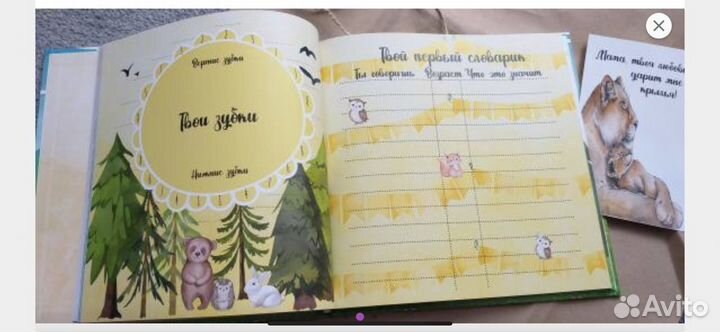 Верхние зубки
Твои зубки
Нижние зубки
Твой первый словарик
Ты говоришь Возраст Что это значит
Мама, твоя любовь
дарит мне
крылья!
Avito